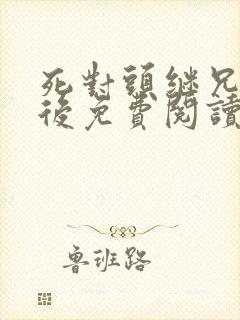 死對頭繼兄
後免費閱讀
魯班路